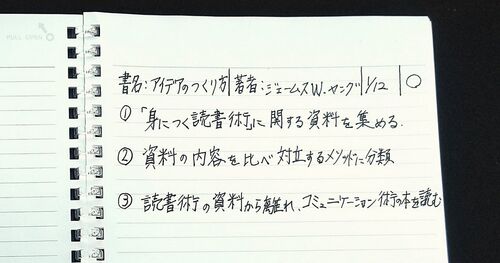 PULL OPEN
書名:アイデアのつくり方|著者:ジェームスW.ヤング|1/12|○
①「身につく読書術」に関する資料を集める.
②資料の内容を比べ対立するメソッドに分類
③読書術の資料から離れ、コミュニケーション術の本を読む